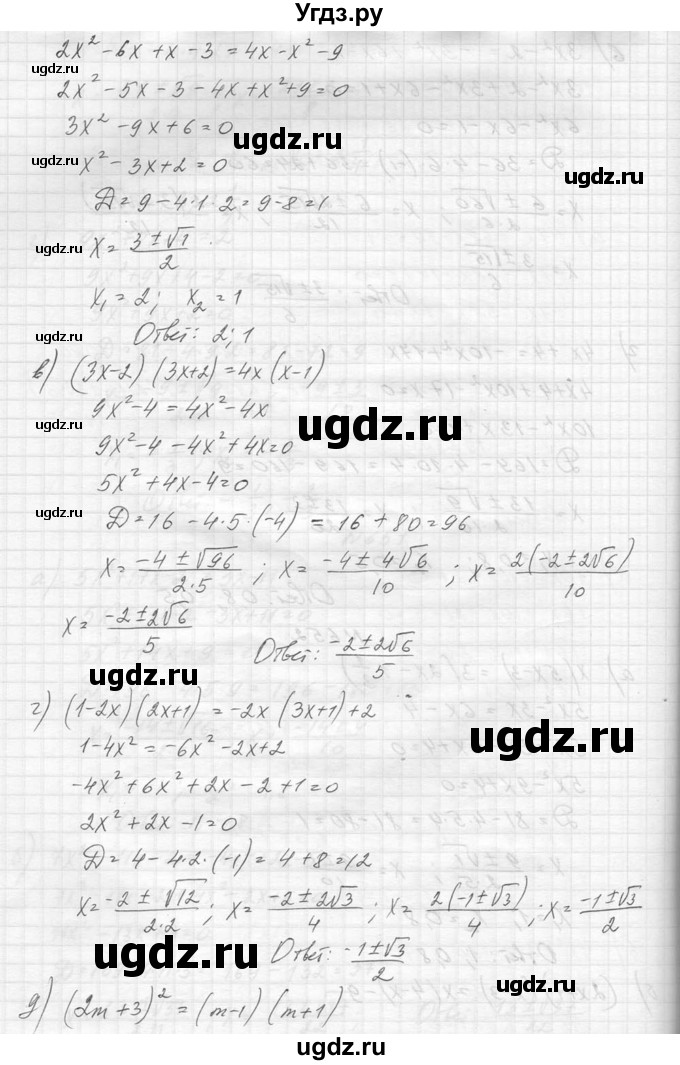 Угдз.ру
2x² - 6x + x - 3 = 4x - x² - 9
ugdz.ru
2x² - 5x - 3 - 4x + x² + 9 = 0
3x² - 9x + 6 = 0
ugdz.ru
ugdz.ru
x² - 3x + 2 = 0
ugdz.ru
Д = 9 - 4·1·2 = 9 - 8 = 1
ugdz.ru
x = (3 ± √1)/2
x₁ = 2; x₂ = 1
ugdz.ru
Ответ: 2; 1
в) (3x-2)(3x+2) = 4x(x-1)
9x² - 4 = 4x² - 4x
ugdz.ru
ugdz.ru
9x² - 4 - 4x² + 4x = 0
5x² + 4x - 4 = 0
ugdz.ru
D = 16 - 4·5·(-4) = 16 + 80 = 96
x = (-4 ± √96)/(2·5); x = (-4 ± 4√6)/10; x = 2(-2 ± 2√6)/10
x = (-2 ± 2√6)/5
Ответ: (-2 ± 2√6)/5
ugdz.ru
г) (1-2x)(2x+1) = -2x(3x+1) + 2
ugdz.ru
1 - 4x² = -6x² - 2x + 2
-4x² + 6x² + 2x - 2 + 1 = 0
2x² + 2x - 1 = 0
Д = 4 - 4·2·(-1) = 4 + 8 = 12
x = (-2 ± √12)/(2·2); x = (-2 ± 2√3)/4; x = 2(-1 ± √3)/4; x = (-1 ± √3)/2
ugdz.ru
Ответ: (-1 ± √3)/2
ugdz.ru
д) (2m+3)² = (m-1)(m+1)
ugdz.ru